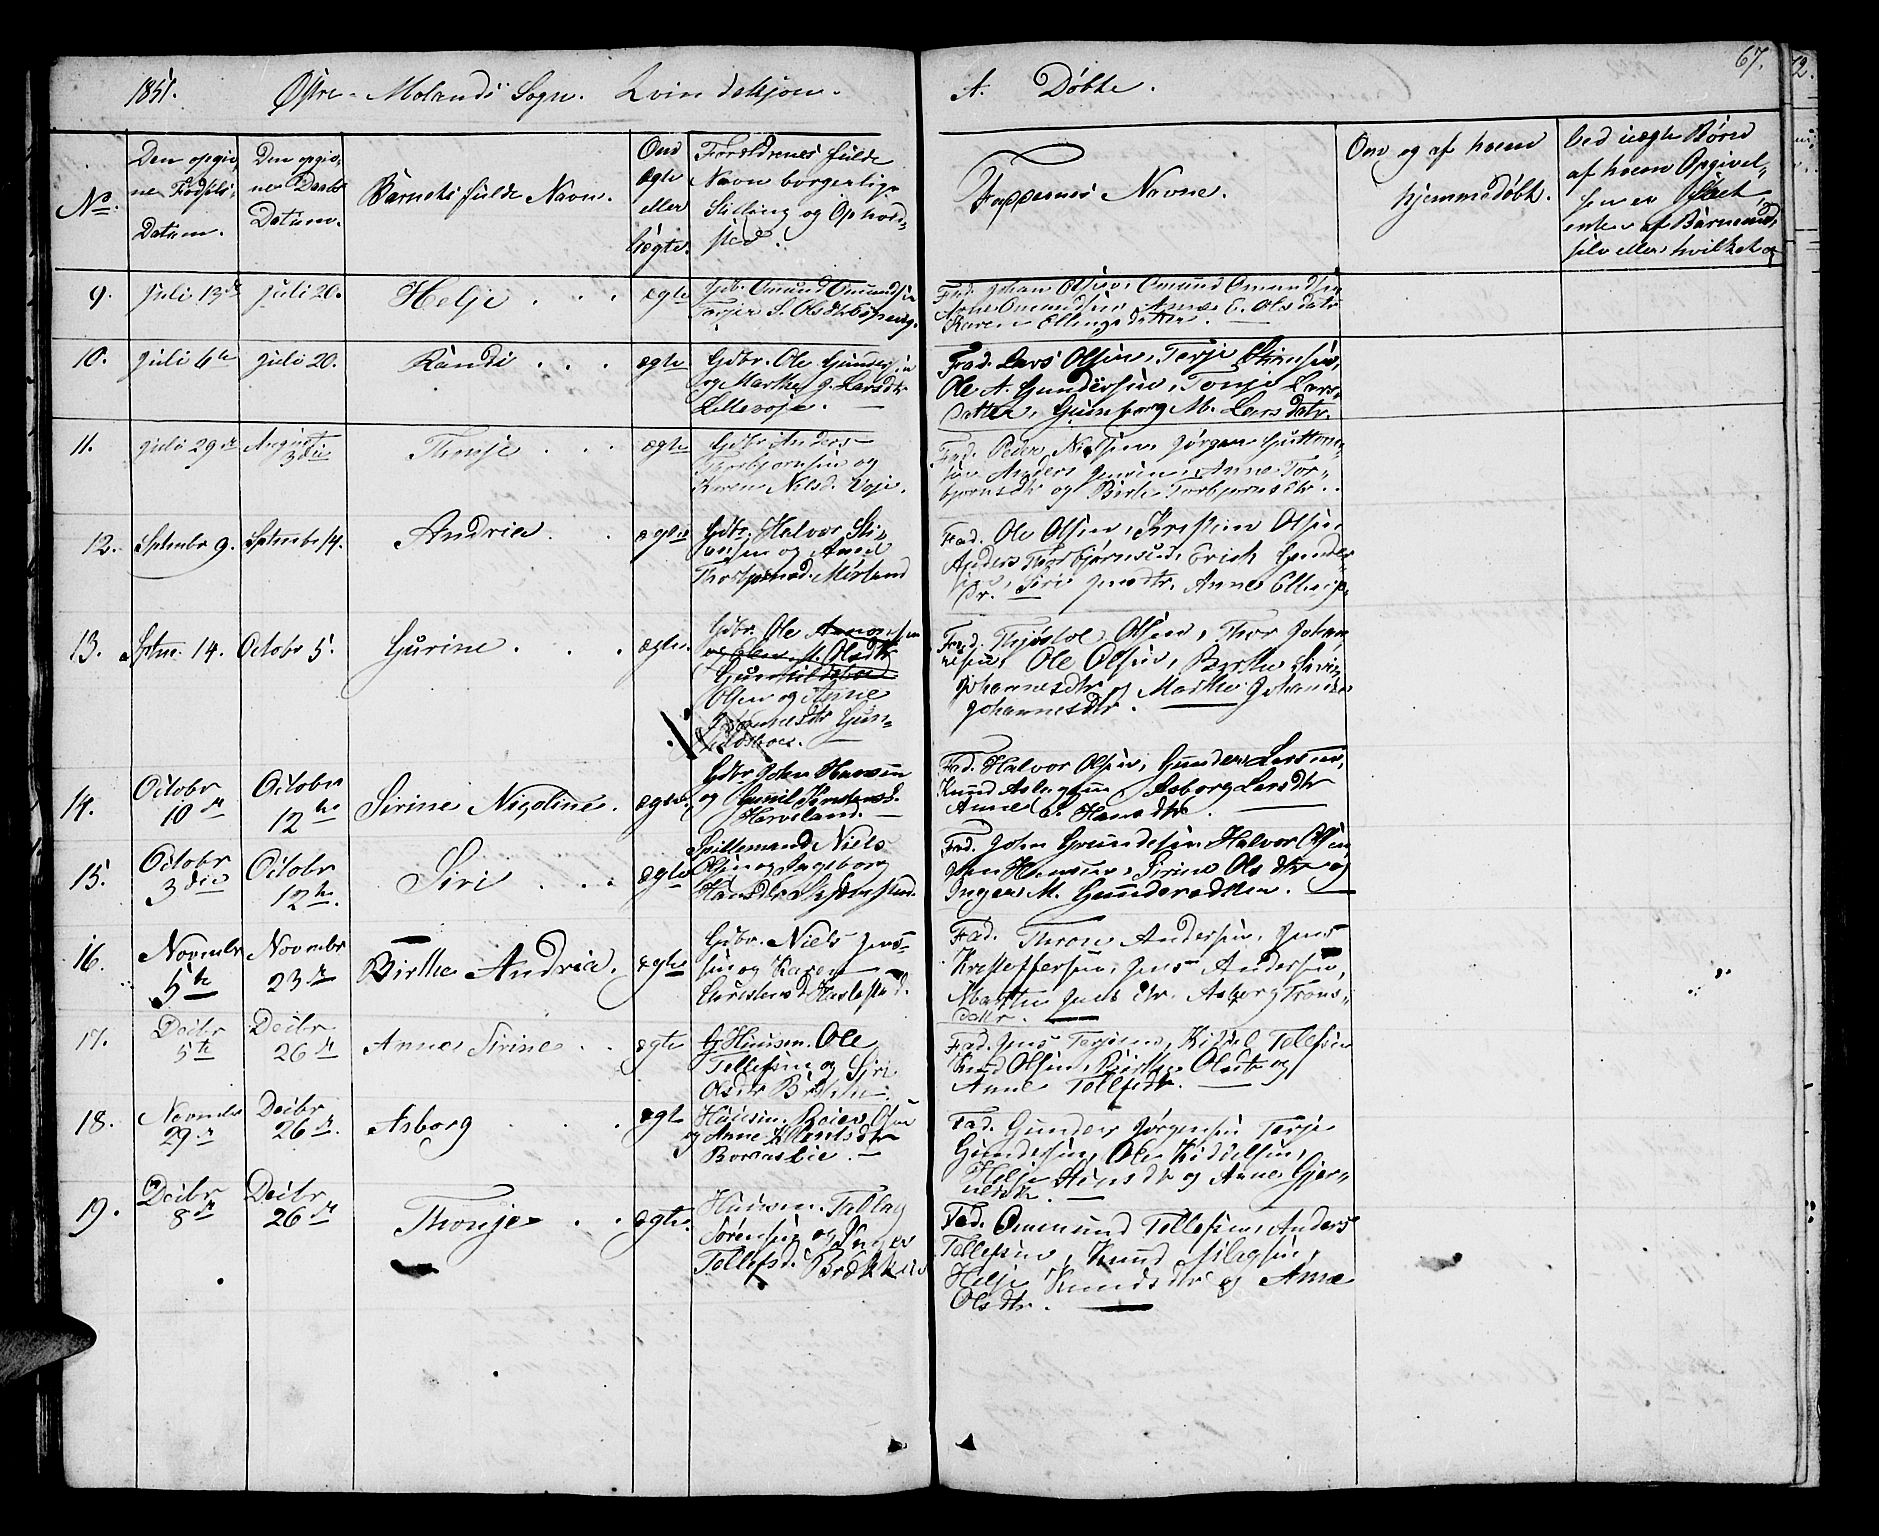 1851. Østre-Molands Sogn. Qvindekjøn. A. Døbte. 67.
No.
Den opgiv-
ne Fødsels-
Datum.
Den opgiv-
ne Daabs
Datum.
Barnets fulde Navn.
Om
ægte
eller
Uægte.
Forældrenes fulde
Navn borgerlige
Stilling og Opholds-
sted.
Faddernes Navne.
Om og af hvem
hjemmedøbt.
Ved uægte Børn
af hvem Opgivel-
sen er skeet
enten af Barnemod.
selv eller hvilken
9. Juli 13de Juli 20. Helje ægte
Gdbr. Omund Omundsen
Terjer S. Olsdtr
Fad. Johan Olsen, Omund Omundsen
Omundsen, Anne E. Olsdatr
Karen Ellingsdatter.
10. Juli 6te Juli 20. Randi ægte
Gdbr. Ole Gundersen
og Marthe G. Larsdtr
Lillevoje.
Fad. Lars Olsen, Terje
Ole A. Gundersen, Tonje Lars-
datter, Gunborg M. Larsdatr.
11. Juli 29de August
3die Thonje ægte
Gdbr. Anders
Thorbjørnsen og
Karen Nilsd. Voje.
Fad. Peder Nielsen, Jørgen Guttorm-
sen Anders Jensen, Anne Tor-
bjørnsdtr og Birthe Torbjørnsdtr.
12. Septembr 9. Septembr 14. Andrea ægte
Gdbr. Halvor
og Anne
Thorbjørnsd. Mørland
Fad. Ole Olsen, Kristen Olsen,
Anders Thorbjørnsen, Erich Gunder-
sen, Siri Jensdtr, Anne Ellings-
dr.
13. Septm. 14. Octobr 5. Gurine ægte
Gdbr. Ole
og M. Olsdtr
Olsen og Anne
Johannesdtr Gun-
Fad. Thjøstol Olsen, Thor Johan-
nesen, Ole Olsen, Birthe
Johannesdtr og Marthe
Johannesdtr.
14. Octobr
10de Octobr
12te Sirine Nicoline ægte
Gdbr. John Hansen
og Gunil
Harveland.
Fad. Halvor Olsen, Gunder Larsen,
Knud Aslagsen, Asborg Larsdtr
Anne S. Hansdtr.
15. Octobr
3die Octobr
12te. Siri ægte
Spillemand Niels
Olsen og Ingeborg
Hansdtr
Fad. John Gundersen Halvor Olsen
Jens Hansen, Sirine Olsdtr og
Inger M. Gundersdtter.
16. Novembr
5te Novembr
23de Birthe Andrea. ægte
Gdbr. Niels Jens-
sen og Karen
Christensd. Haslestad.
Fad. Thron Andersen, Jens
Kristoffersen, Jens Andersen,
Marthe Jensdtr. Asborg Trons-
datr.
17. Decbr
5te Decbr
26de Anne Sirine ægte
Huusm. Ole
Tellefsen og Siri
Olsdtr
Fad. Jens Terjesen, Kittel Tellefsen
Knud Olsen, Birthe Olsdtr og
Anne Tellefsdtr.
18. Novembr
29de Decbr
26de. Asborg ægte
Huusm. Reier Olsen
og Anne
Fad. Gunder Jørgensen Terje
Gundersen, Ole Kittelsen,
Helje og Anne Gjer-
19. Decbr
8de Decbr
26de Thonje ægte
Huusm. Tallag
Sørensen og
Tellefsd. Brækken
Fad. Ommund Tellefsen, Anders
Tellefsen, Knud
Helje Knudsdtr og Anne
Olsdtr.